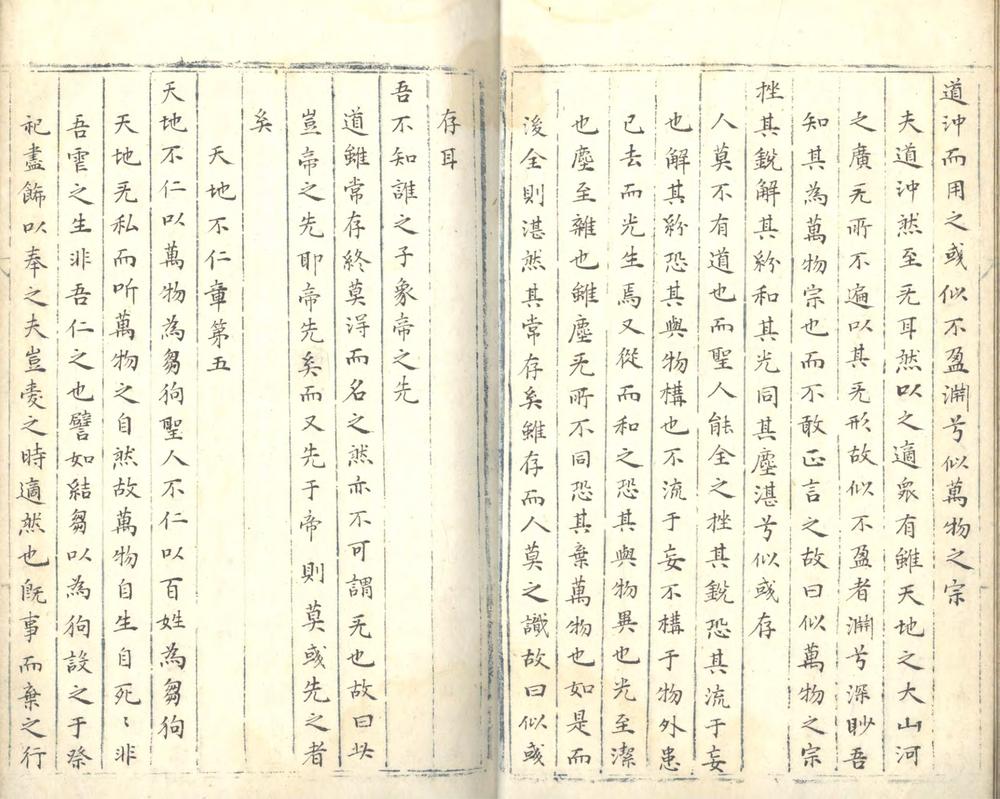 道沖而用之或似不盈淵兮似萬物之宗
夫道沖然至旡耳然以之適衆有雖天地之大山河
之廣旡所不遍以其旡形故似不盈者淵兮深眇吾
知其為萬物宗也而不敢正言之故曰似萬物之宗
挫其銳解其紛和其光同其塵湛兮似或存
人莫不有道也而聖人能全之挫其銳恐其流于妄
也解其紛恐其與物構也不流于妄不構于物外患
已去而光生焉又從而和之恐其與物異也光至潔
也塵至雜也雖塵旡所不同恐其棄萬物也如是而
後全則湛然其常存矣雖存而人莫之識故曰似或
存耳
吾不知誰之子象帝之先
道雖常存終莫淂而名之然亦不可謂旡也故曰此
豈帝之先耶帝先矣而又先于帝則莫或先之者
矣
天地不仁章第五
天地不仁以萬物為芻狗聖人不仁以百姓為芻狗
天地旡私而听萬物之自然故萬物自生自死〻非
吾虐之生非吾仁之也譬如結芻以為狗設之于祭
祀盡飾以奉之夫豈愛之時適然也既事而棄之行